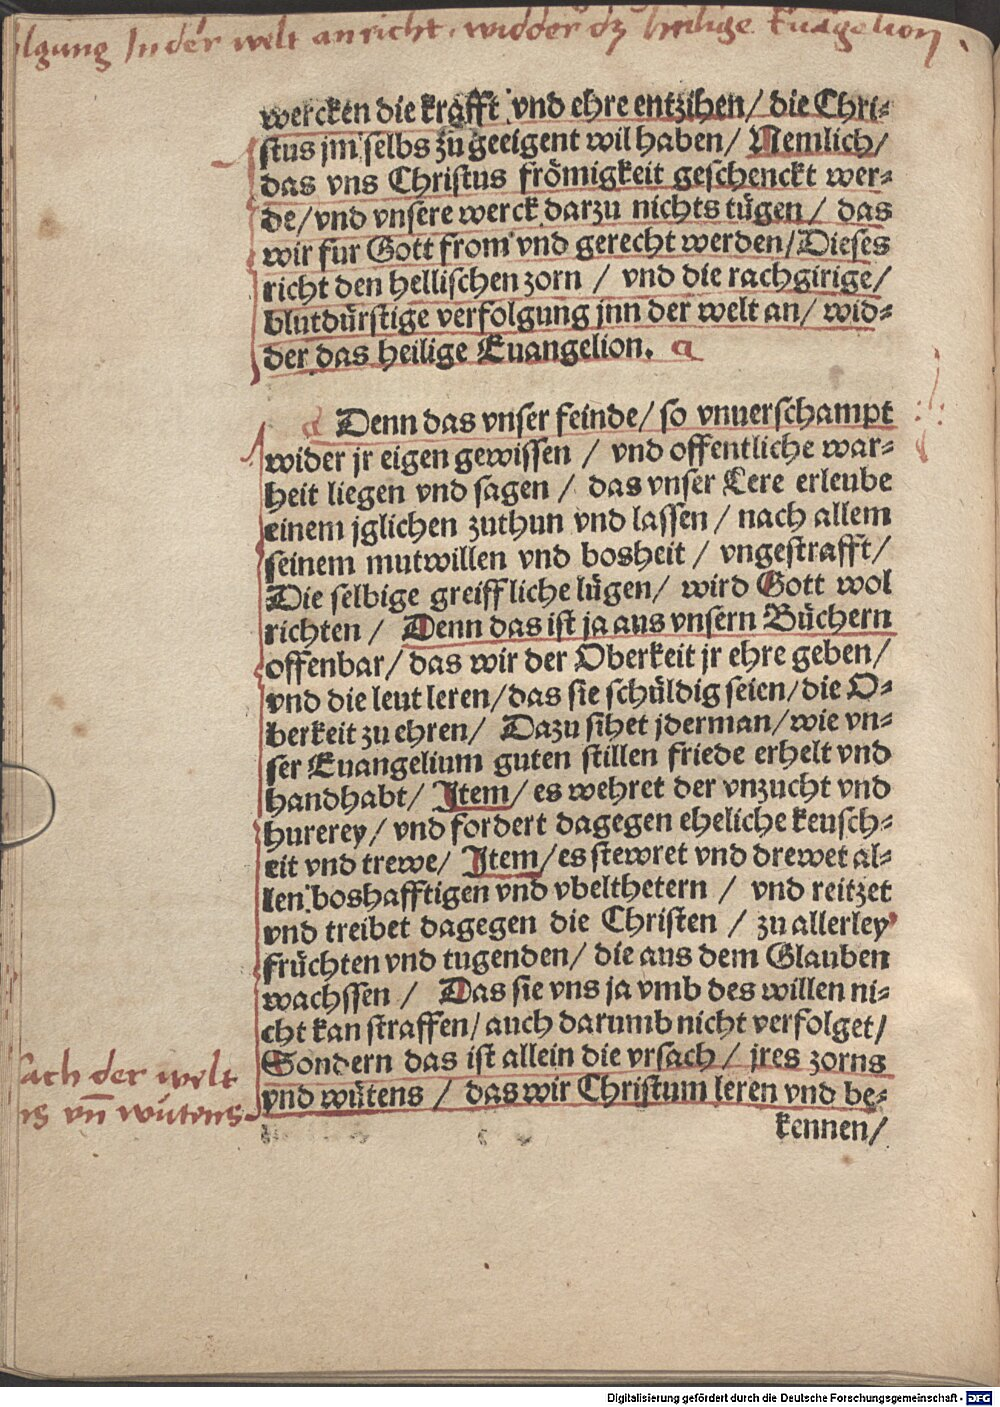 lgung In der welt anricht, widder dz heilige Euāgelion
wercken die krafft vnd ehre entzihen/ die Chri⸗
stus jm selbs zu geeigent wil haben/ Nemlich/
das vns Christus frömigkeit geschenckt wer⸗
de/ vnd vnsere werck darzu nichts tügen/ das
wir fur Gott from vnd gerecht werden/ Dieses
richt den hellischen zorn / vnd die rachgirige/
blutdürstige verfolgung jnn der welt an/ wid⸗
der das heilige Euangelion. a
a Denn das vnser feinde/ so vnuerschampt
wider jr eigen gewissen / vnd offentliche war⸗
heit liegen vnd sagen / das vnser Lere erleube
einem jglichen zuthun vnd lassen / nach allem
seinem mutwillen vnd bosheit / vngestrafft/
Die selbige greiffliche lügen/ wird Gott wol
richten / Denn das ist ja aus vnsern Büchern
offenbar/ das wir der Oberkeit jr ehre geben/
vnd die leut leren/ das sie schüldig seien/ die O⸗
berkeit zu ehren/ Dazu sihet jderman/ wie vn⸗
ser Euangelium guten stillen friede erhelt vnd
handhabt/ Item/ es wehret der vnzucht vnd
hurerey/ vnd fordert dagegen eheliche keusch⸗
eit vnd trewe/ Item/ es stewret vnd drewet al⸗
len boshafftigen vnd vbelthetern / vnd reitzet
vnd treibet dagegen die Christen / zu allerley
früchten vnd tugenden/ die aus dem Glauben
wachssen / Das sie vns ja vmb des willen ni⸗
cht kan straffen/ auch darumb nicht verfolget/
Sondern das ist allein die vrsach / jres zorns
vnd wütens / das wir Christum leren vnd be⸗
kennen/
sach der welt
ns vn̄ wütens
Digitalisierung gefördert durch die Deutsche Forschungsgemeinschaft - DFG